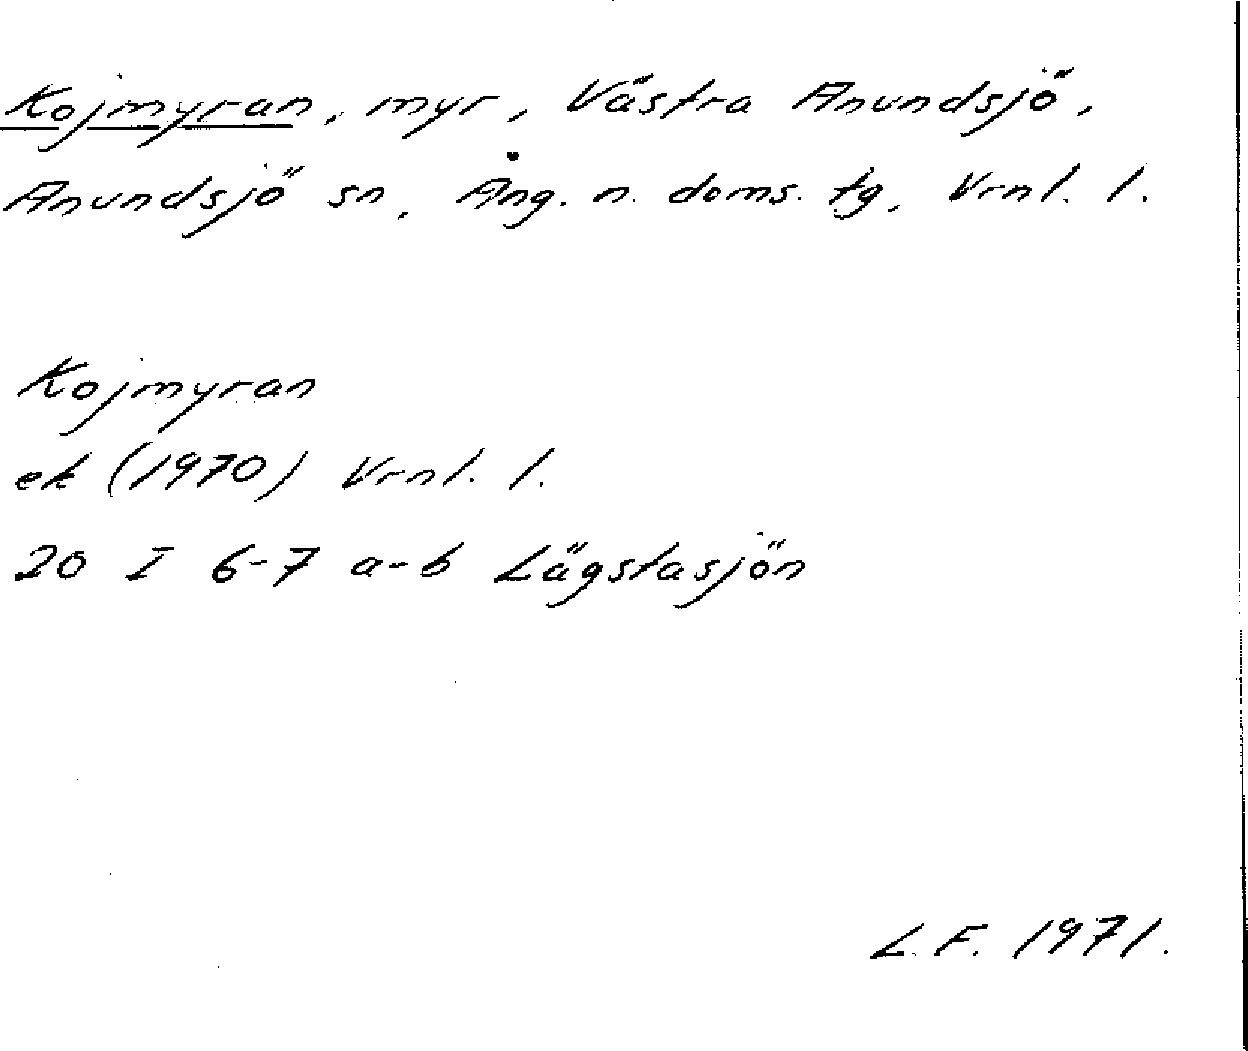 Kojmyran, myr, Västra Anundsjö,
Anundsjö sn, Ång. n. doms. tg, Vrnl. l.
Kojmyran
ek (1970) Vrnl. l.
20 I 6-7 a-b Lägstasjön
L.F. 1971.